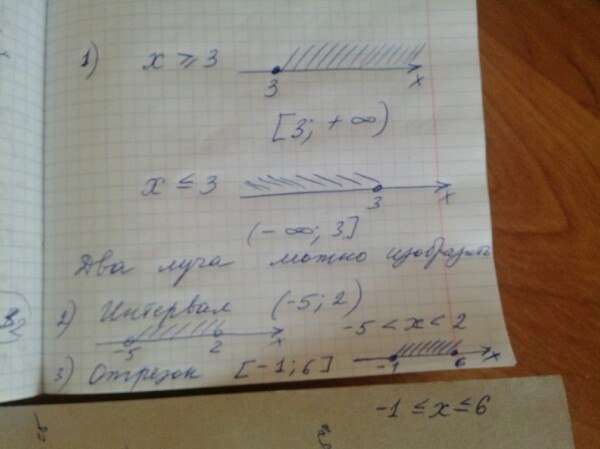 1) x ⩾ 3
3 x
[3; +∞)
x ≤ 3
3 x
(-∞; 3]
Два луча можно изобразить
2) Интервал (-5; 2)
-5 2 x -5 < x < 2
3) Отрезок [-1; 6] -1 6 x
-1 ≤ x ≤ 6